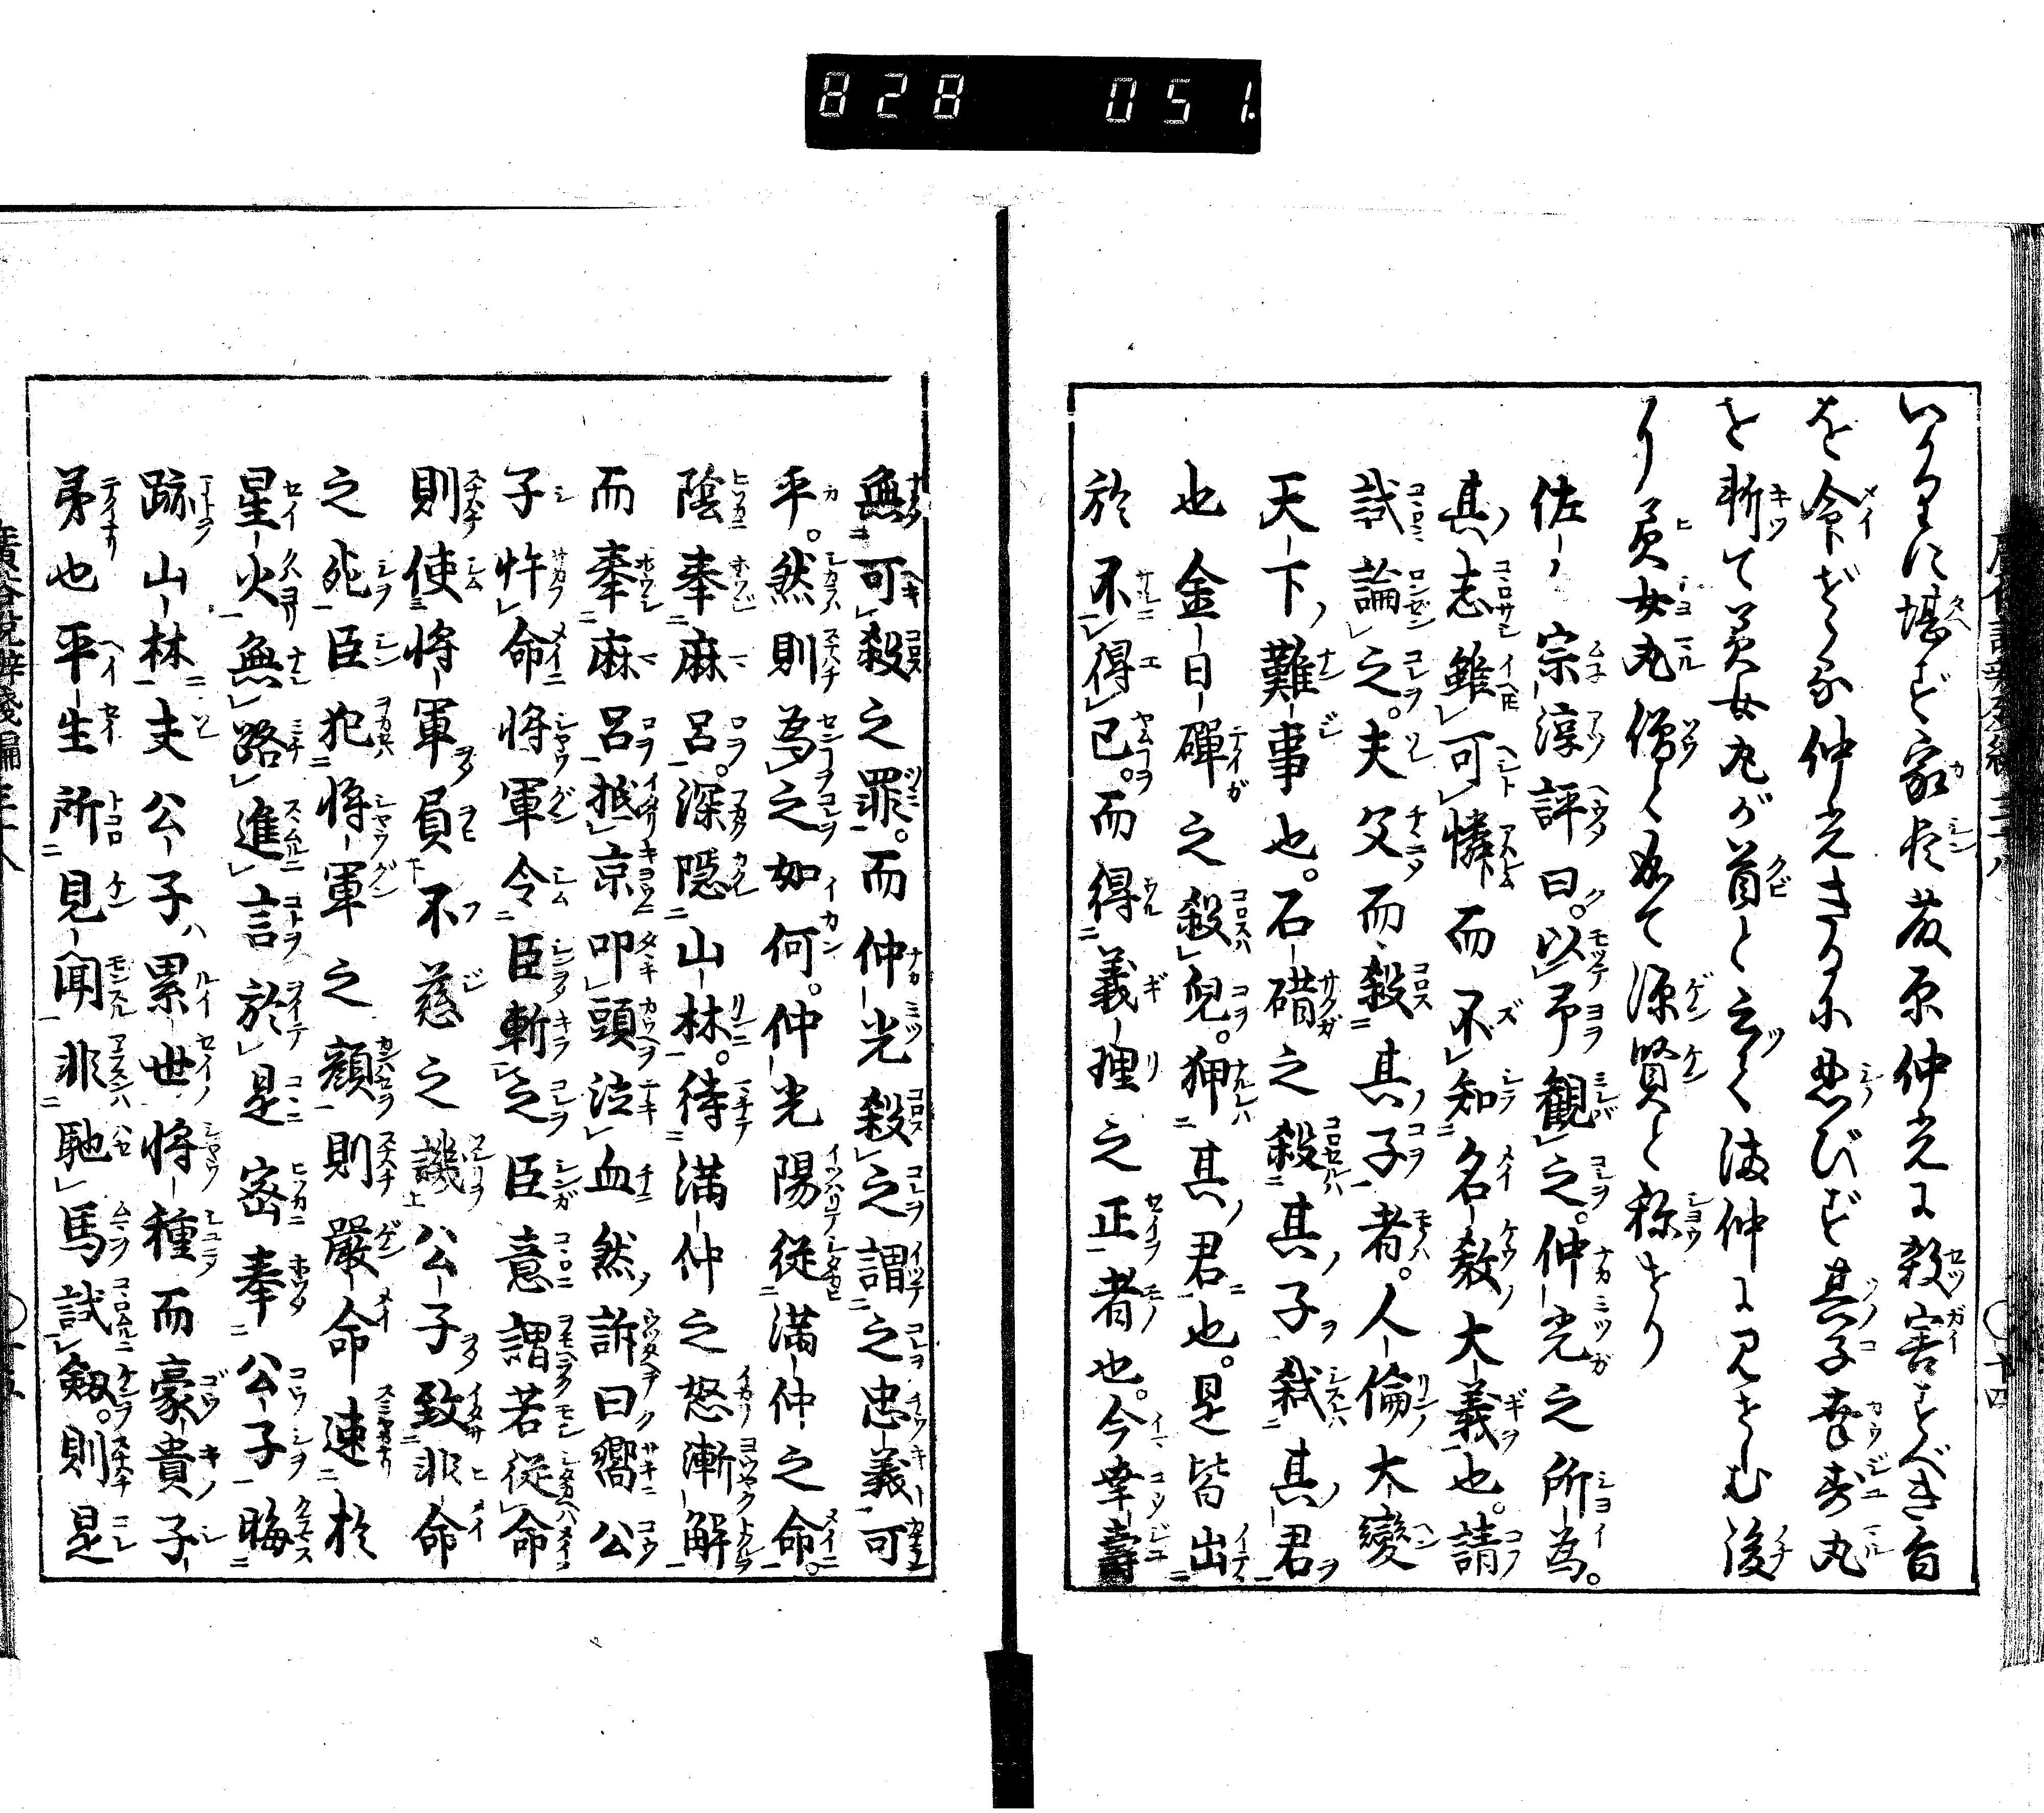 828 051.
いかりに堪ず家臣藤原仲光に殺害すべき旨
を令ずる仲光きるに忍びず其子幸寿丸
を斬て美女丸が首と云く満仲に見せむ後
り美女丸僧と成て源賢と称せり
佐々宗淳評曰。以予観之。仲光之所為。
其志雖可憐而不知名教大義也。請
試論之。夫父而殺其子者。人倫大変
天下難事也。石碏之殺其子弑其君
也金日磾之殺児。狎其君也。是皆出
於不得已。而得義理之正者也。今幸壽
無可殺之罪。而仲光殺之謂之忠義可
乎。然則為之如何。仲光陽従満仲之命。
陰奉麻呂。深隠山林。待満仲之怒漸解
而奉麻呂抵京叩頭泣血然訴曰嚮公
子忤命将軍令臣斬之臣意謂若従命
則使将軍負不慈之譏公子致非命
之死臣犯将軍之顔則厳命速於
星火無路進言於是密奉公子晦
跡山林夫公子累世将種而豪貴子
弟也平生所見聞非馳馬試劔。則是